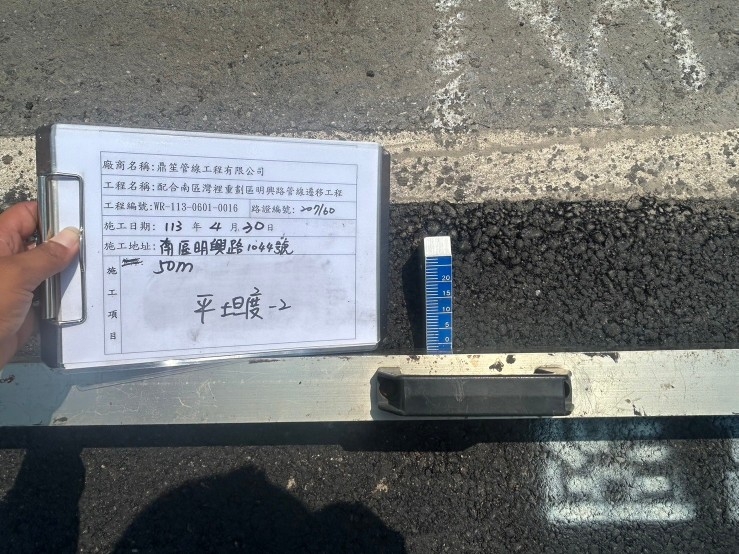 廠商名稱:鼎笙管線工程有限公司
工程名稱:配合南區灣裡重劃區明興路管線遷移工程
工程編號:WR-113-0601-0016 路證編號: 207160
施工日期: 113 年 4 月 30 日
施工地址: 南區明興路1044號
施工項目
50m
平坦度-2
20
15
10
5
0